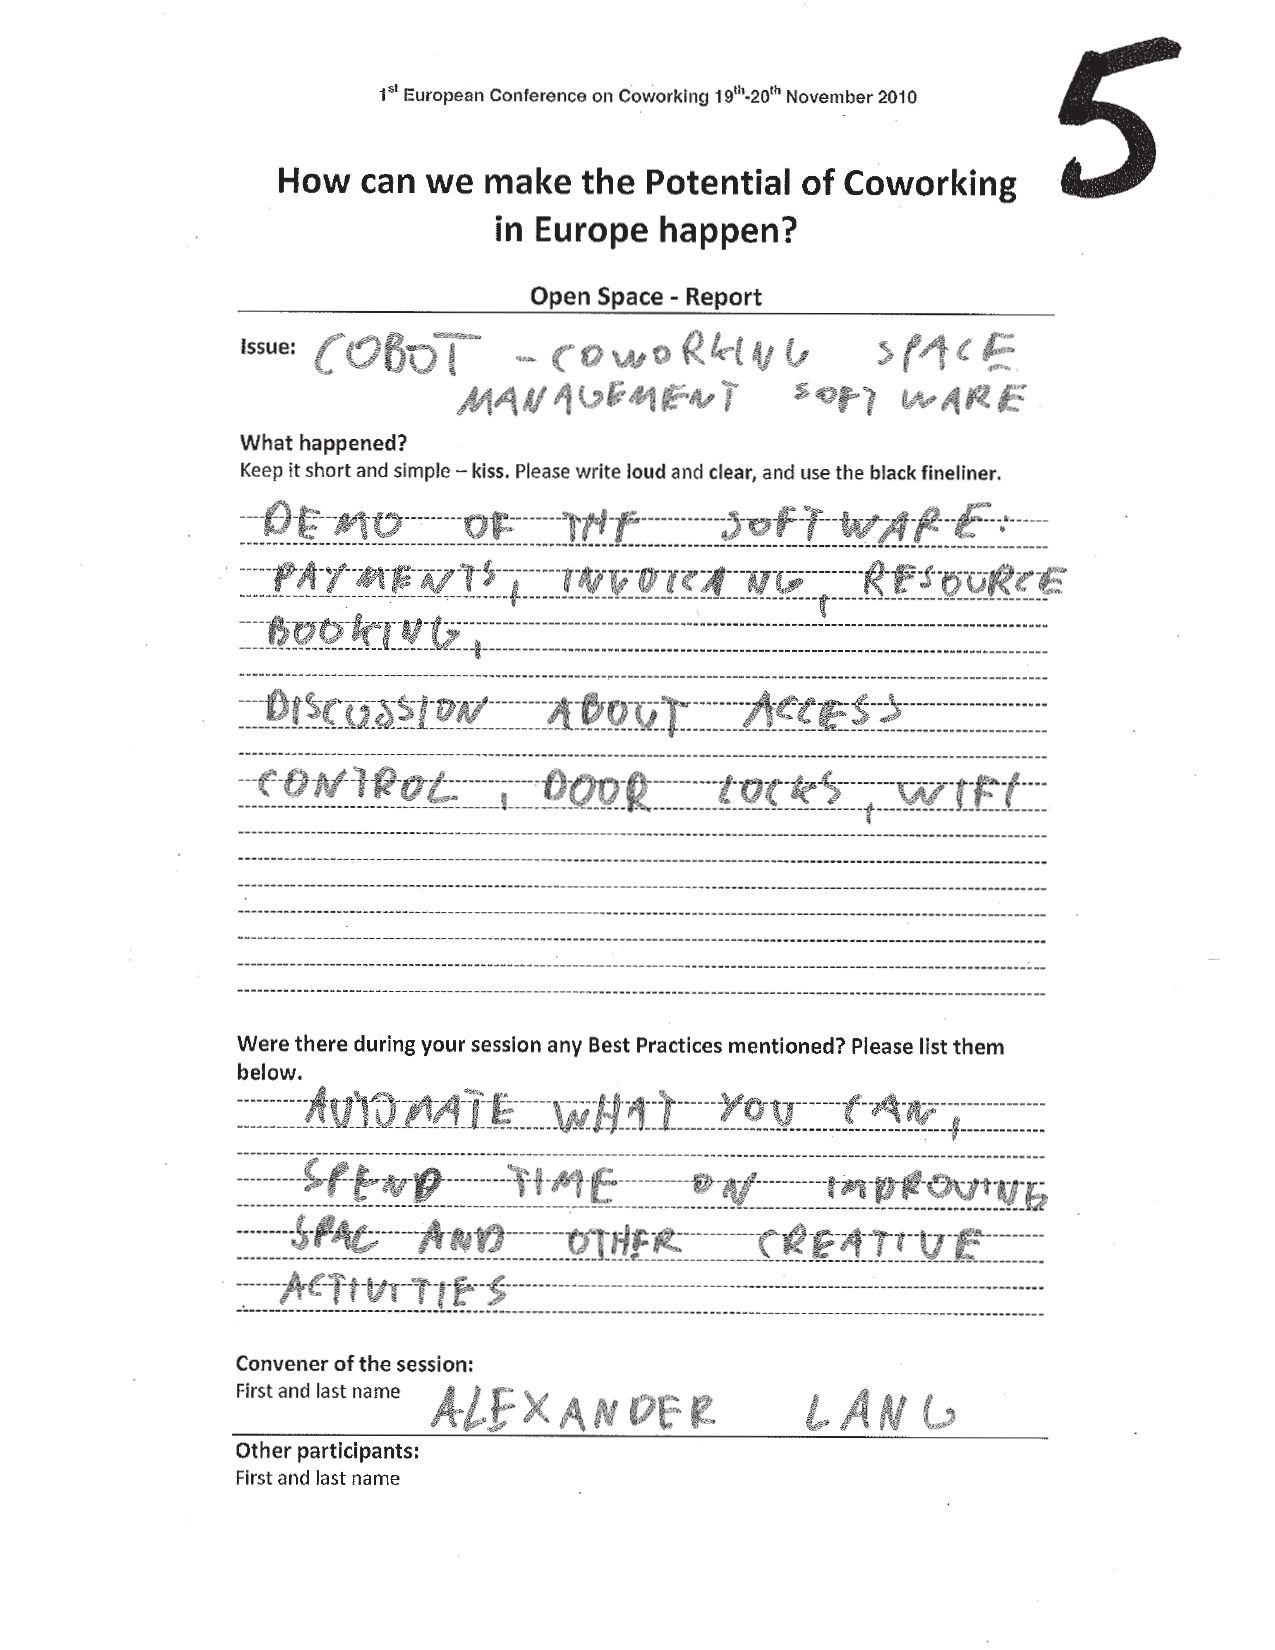 5
1st European Conference on Coworking 19th-20th November 2010
How can we make the Potential of Coworking
in Europe happen?
Open Space - Report
Issue: COBOT - COWORKING SPACE
MANAGEMENT SOFTWARE
What happened?
Keep it short and simple – kiss. Please write loud and clear, and use the black fineliner.
DEMO OF THE SOFTWARE:
PAYMENTS, INVOICANG, RESOURCE
BOOKING,
DISCUSSION ABOUT ACCESS
CONTROL, DOOR LOCKS, WIFI
Were there during your session any Best Practices mentioned? Please list them
below.
AUTOMATE WHAT YOU CAN,
SPEND TIME ON IMPROVING
SPAC AND OTHER CREATIVE
ACTIVITIES
Convener of the session:
First and last name ALEXANDER LANG
Other participants:
First and last name